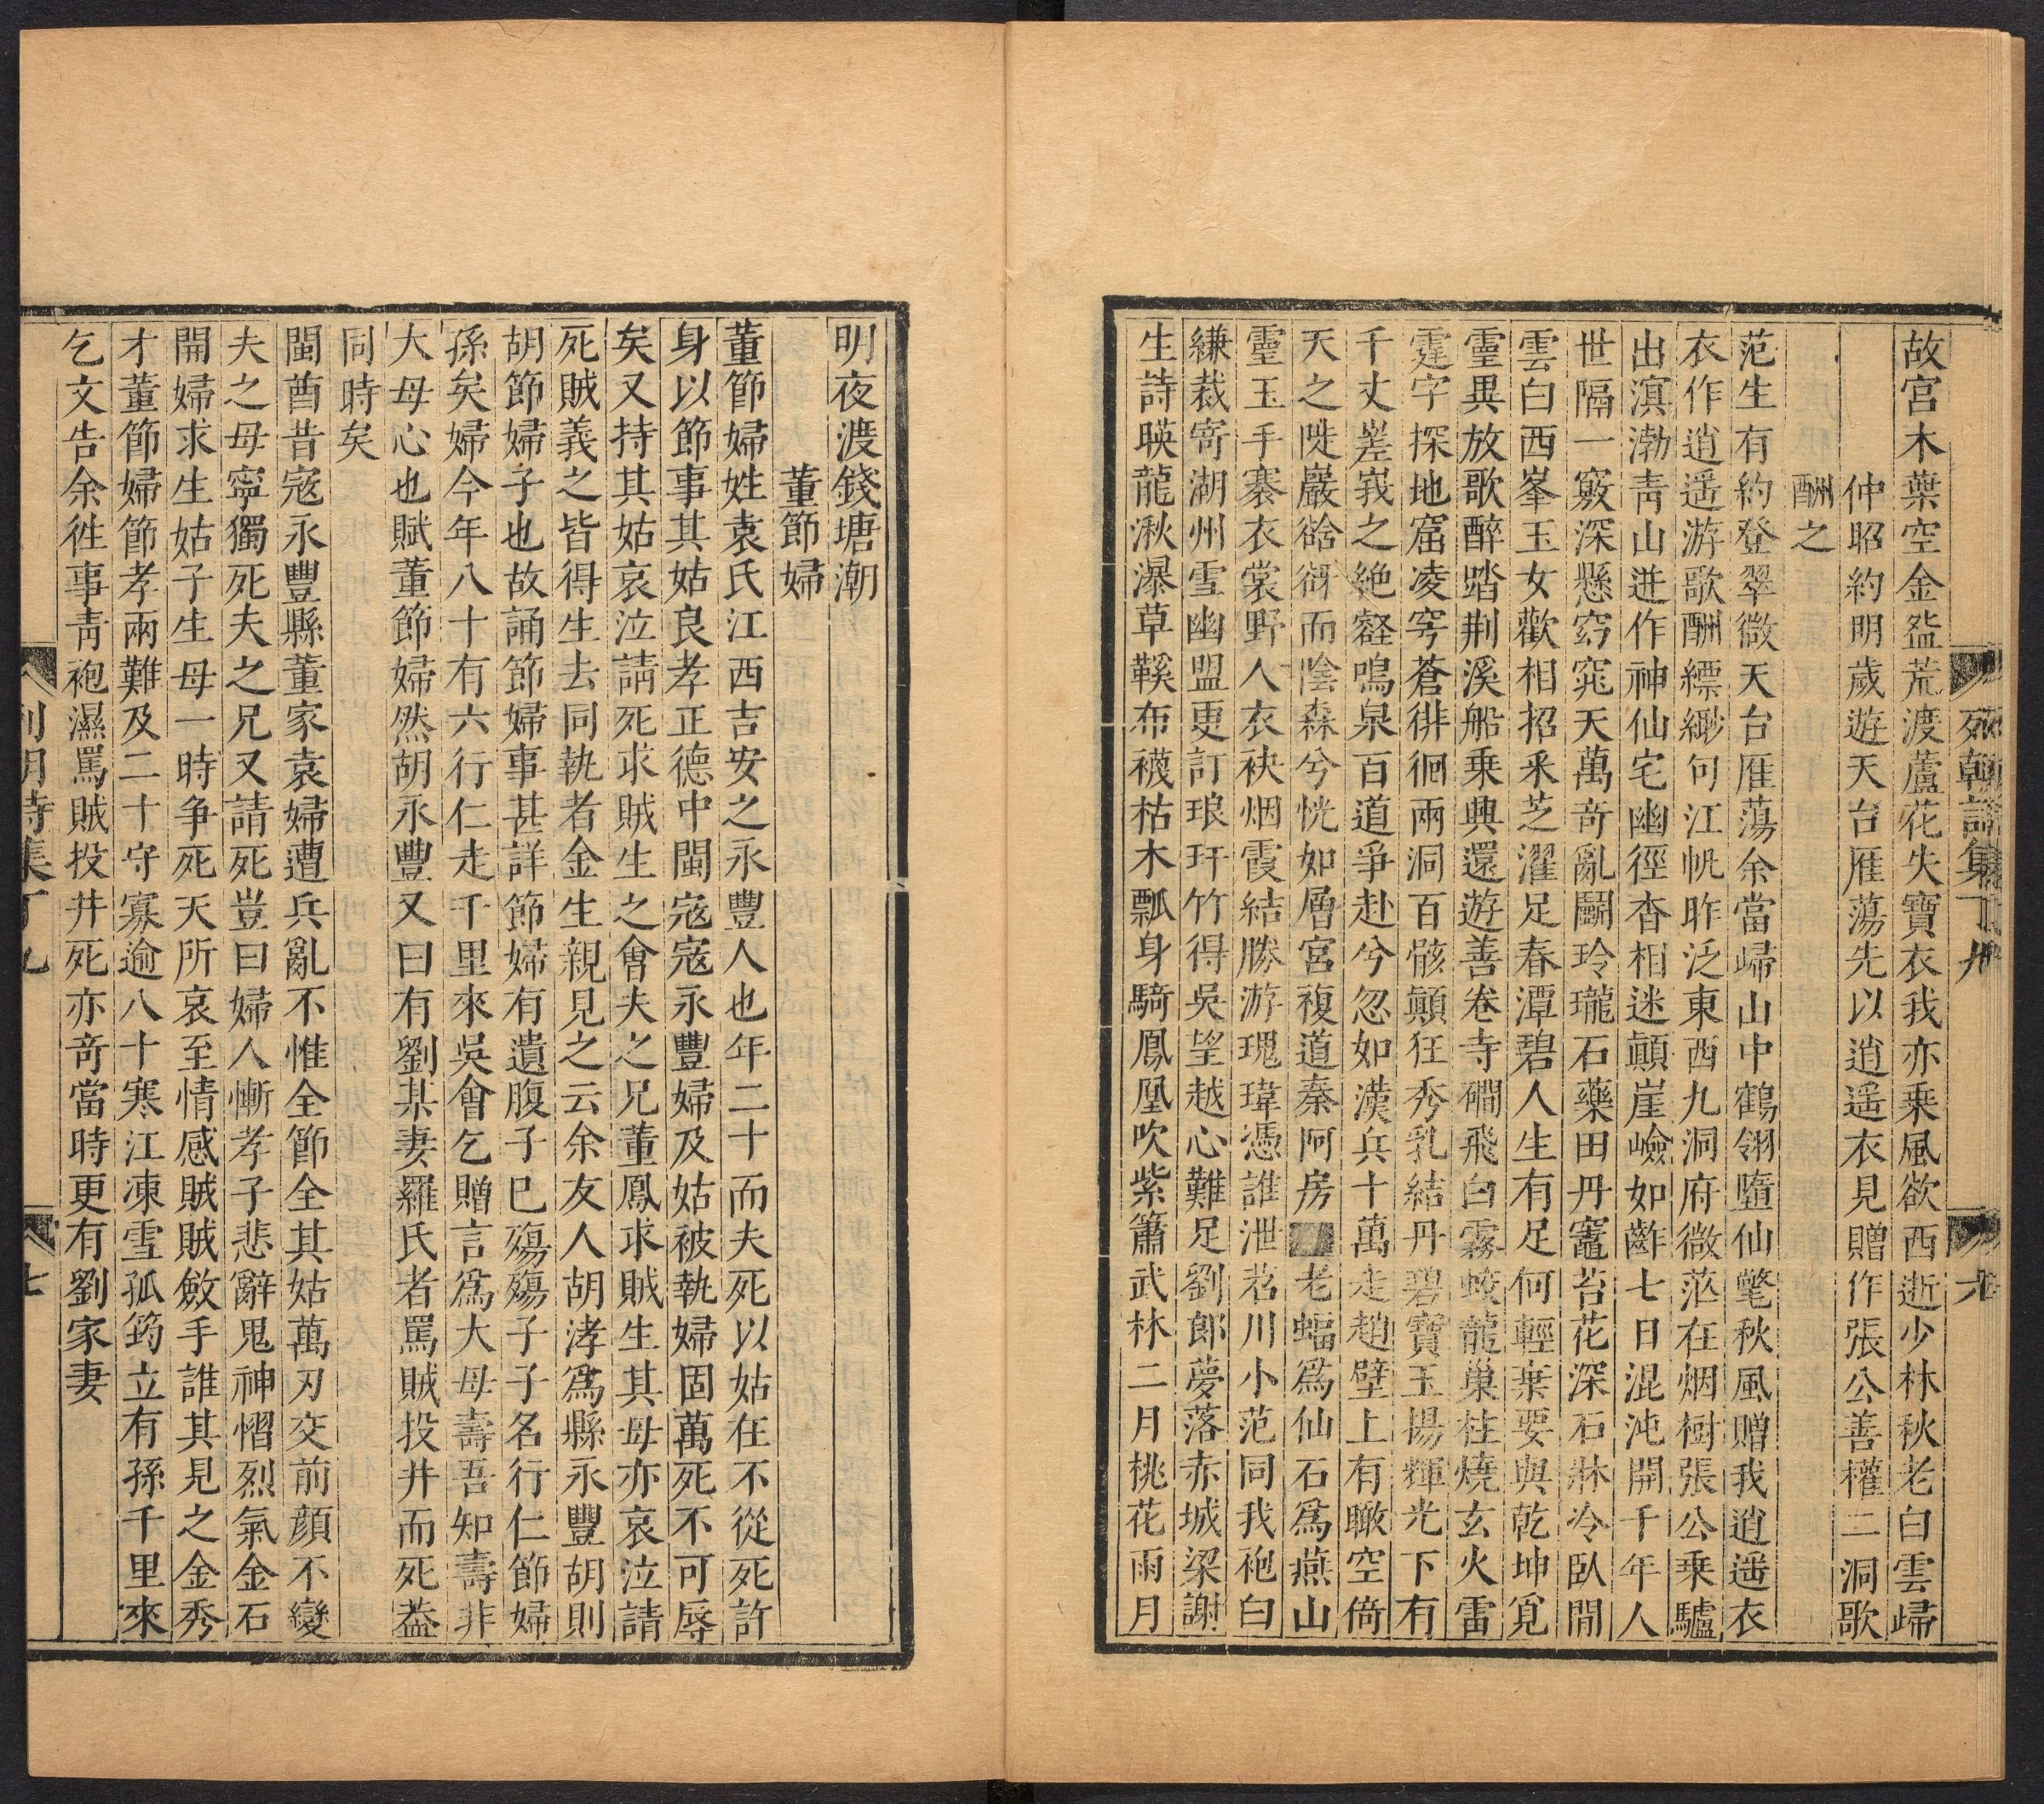 故宮木葉空金盌荒渡蘆花失寶衣我亦乘風欲西逝少林秋老白雲歸
仲昭約明歲遊天台雁蕩先以逍遙衣見贈作張公善權二洞歌
酬之
范生有約登翠微天台雁蕩余當歸山中鶴翎墮仙氅秋風贈我逍遙衣
衣作逍遙游歌酬縹緲句江帆昨泛東西九洞府微茫在烟樹張公乘驢
出溟渤青山迸作神仙宅幽徑杳相迷顚崖嶮如齚七日混沌開千年人
世隔一竅深懸窈窕天萬竒亂鬬玲瓏石藥田丹竈苔花深石牀冷臥閒
雲白西峯玉女歡相招采芝濯足春潭碧人生有足何輕棄要與乾坤覓
靈異放歌醉踏荆溪船乗興還遊善卷寺磵飛白霧蛟龍巢柱燒玄火雷
霆字探地窟凌穹蒼徘徊兩洞百骸顚狂秀乳結丹碧寶玉揚輝光下有
千丈嵳峩之絶壑鳴泉百道爭赴兮忽如漢兵十萬走趙壁上有瞰空倚
天之陡巖谽谺而陰森兮恍如層宮複道秦阿房老蝠爲仙石爲燕山
靈玉手褰衣裳野人衣袂烟霞結勝游瑰瑋憑誰泄茗川小范同我袍白
縑裁寄湖州雪幽盟更訂琅玕竹得吳望越心難足劉郎夢落赤城梁謝
生詩暎龍湫瀑草鞵布襪枯木瓢身騎鳳凰吹紫簫武林二月桃花雨月
列朝詩集丁九
六
明夜渡錢塘潮
董節婦
董節婦姓袁氏江西吉安之永豐人也年二十而夫死以姑在不從死許
身以節事其姑良孝正德中閩寇寇永豐婦及姑被執婦固萬死不可辱
矣又持其姑哀泣請死求賊生之會夫之兄董鳳求賊生其母亦哀泣請
死賊義之皆得生去同執者金生親見之云余友人胡涍爲縣永豐胡則
胡節婦子也故誦節婦事甚詳節婦有遺腹子巳殤殤子子名行仁節婦
孫矣婦今年八十有六行仁走千里來吳會乞贈言爲大母壽吾知壽非
大母心也賦董節婦然胡永豐又曰有劉某妻羅氏者罵賊投井而死葢
同時矣
閩酋昔寇永豐縣董家袁婦遭兵亂不惟全節全其姑萬刃交前顔不變
夫之母寧獨死夫之兄又請死豈曰婦人慚孝子悲辭鬼神慴烈氣金石
開婦求生姑子生母一時争死天所哀至情感賊賊斂手誰其見之金秀
才董節婦節孝兩難及二十守寡逾八十寒江凍雪孤筠立有孫千里來
乞文告余徃事靑袍濕罵賊投井死亦竒當時更有劉家妻
列朝詩集丁九
七